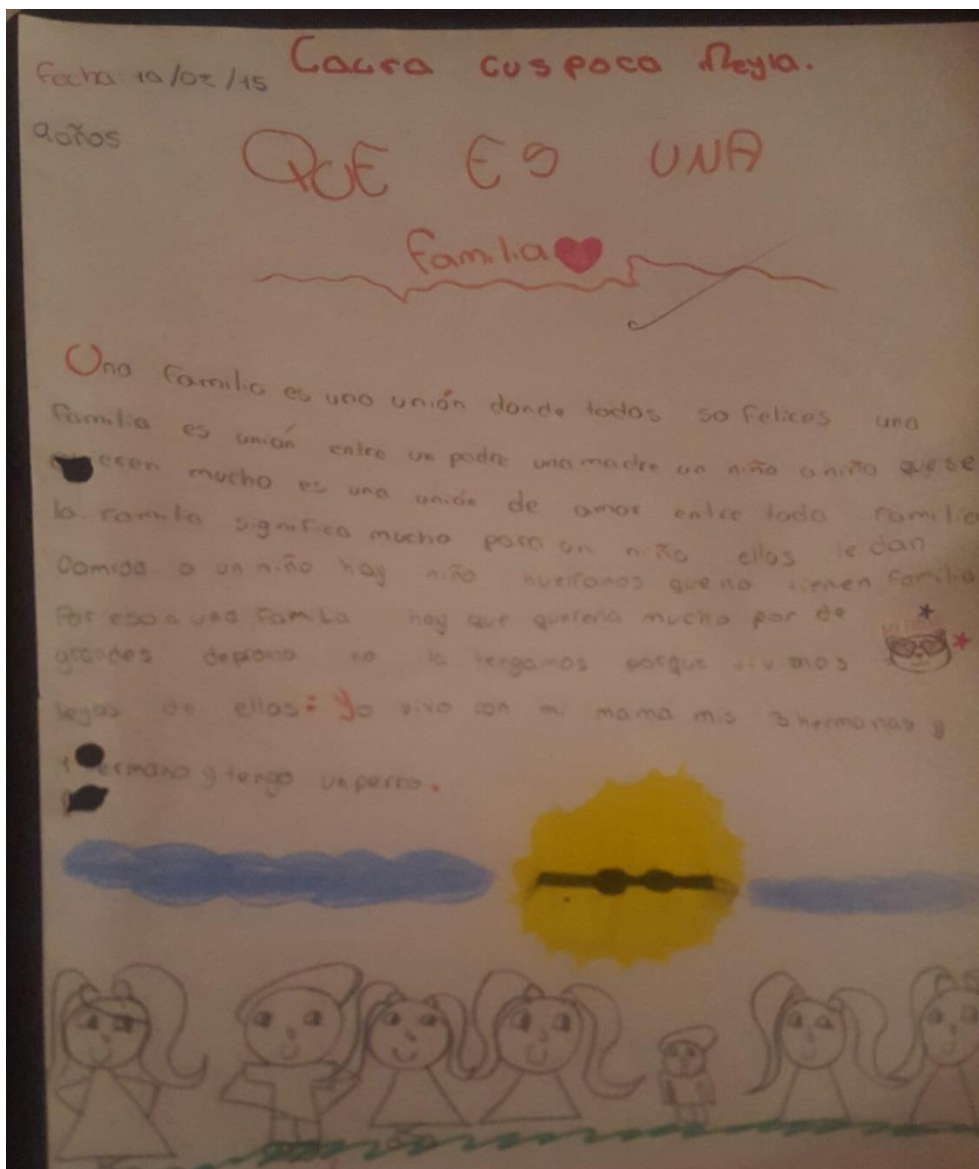 Laura cuspoca Neyla.
Fecha: 10/02/15
9 años
QUE ES UNA
familia
Una familia es una unión donde todos so felices una
familia es unión entre un padre una madre un niño o niña que se
mucho es una unión de amor entre toda familia
la familia significa mucho para un niño ellos le dan
comida a un niño hay niño huerfanos que no tienen familia
Por eso a una familia hay que quererla mucho por de
grandes no la tengamos porque vivimos
legos de ellos: Yo vivo con mi mama mis 3 hermanas y
1 hermano y tengo un perro.